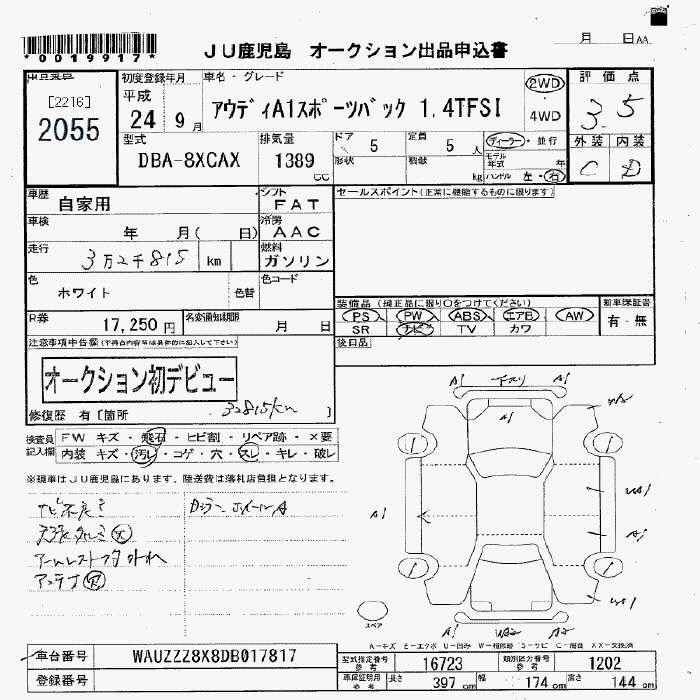 *0019917*
JU鹿児島 オークション出品申込書
月 日AA
[2216]
2055
初度登録年月
平成
24 9月
車名・グレード
アウディA1スポーツバック 1.4TFSI
2WD
・
4WD
評価点
3.5
型式
DBA-8XCAX
排気量
1389 cc
ドア 5
定員 5人
形状
積載 kg
ディーラー・並行
モデル年式 年
ハンドル 左・右
外装 内装
C D
車歴
自家用
シフト
FAT
セールスポイント(正常に機能するものに限ります)
車検
年 月( 日)
冷房
AAC
走行
3万2千815 km
燃料
ガソリン
色
ホワイト
色替
色コード
装備品(純正品に限り○をつけてください)
新車保証書
PS PW ABS エアB AW
有・無
SR ナビ TV カワ
R券
17,250円
名変通知期限
月 日
後日品
注意事項申告欄(不具合内容等は具体的に記入して下さい)
オークション初デビュー
修復歴 有[箇所 32815km ]
検査員記入欄
FW キズ・飛石・ヒビ割・リペア跡・×要
内装 キズ・汚レ・コゲ・穴・スレ・キレ・破レ
※現車はJU鹿児島にあります。陸送費は落札店負担となります。
アンテナ欠
A1 A1
A1
A1
A1
スペア
A1 A2
A-キズ E-エクボ U-凹み W-補修跡 S-サビ C-腐食 XX-交換済
車台番号 WAUZZZ8X8DB017817
型式指定番号 参考 16723
類別区分番号 参考 1202
登録番号
車庫証明用 参考 長さ 397cm 幅 174cm 高さ 144cm